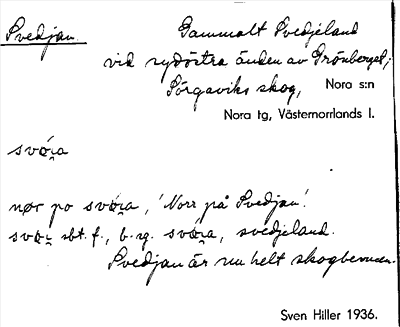 Svedjan.
Gammalt Svedjeland
vid sydöstra änden av Grönberget,
Sörgaviks skog, Nora s:n
Nora tg, Västernorrlands l.
svǫ́ra
nør po svǫ́ra, 'Norr på Svedjan'.
sbt. f., b. sg. svǫ́ra, svedjeland.
Svedjan är nu helt skogbevuxen.
Sven Hiller 1936.